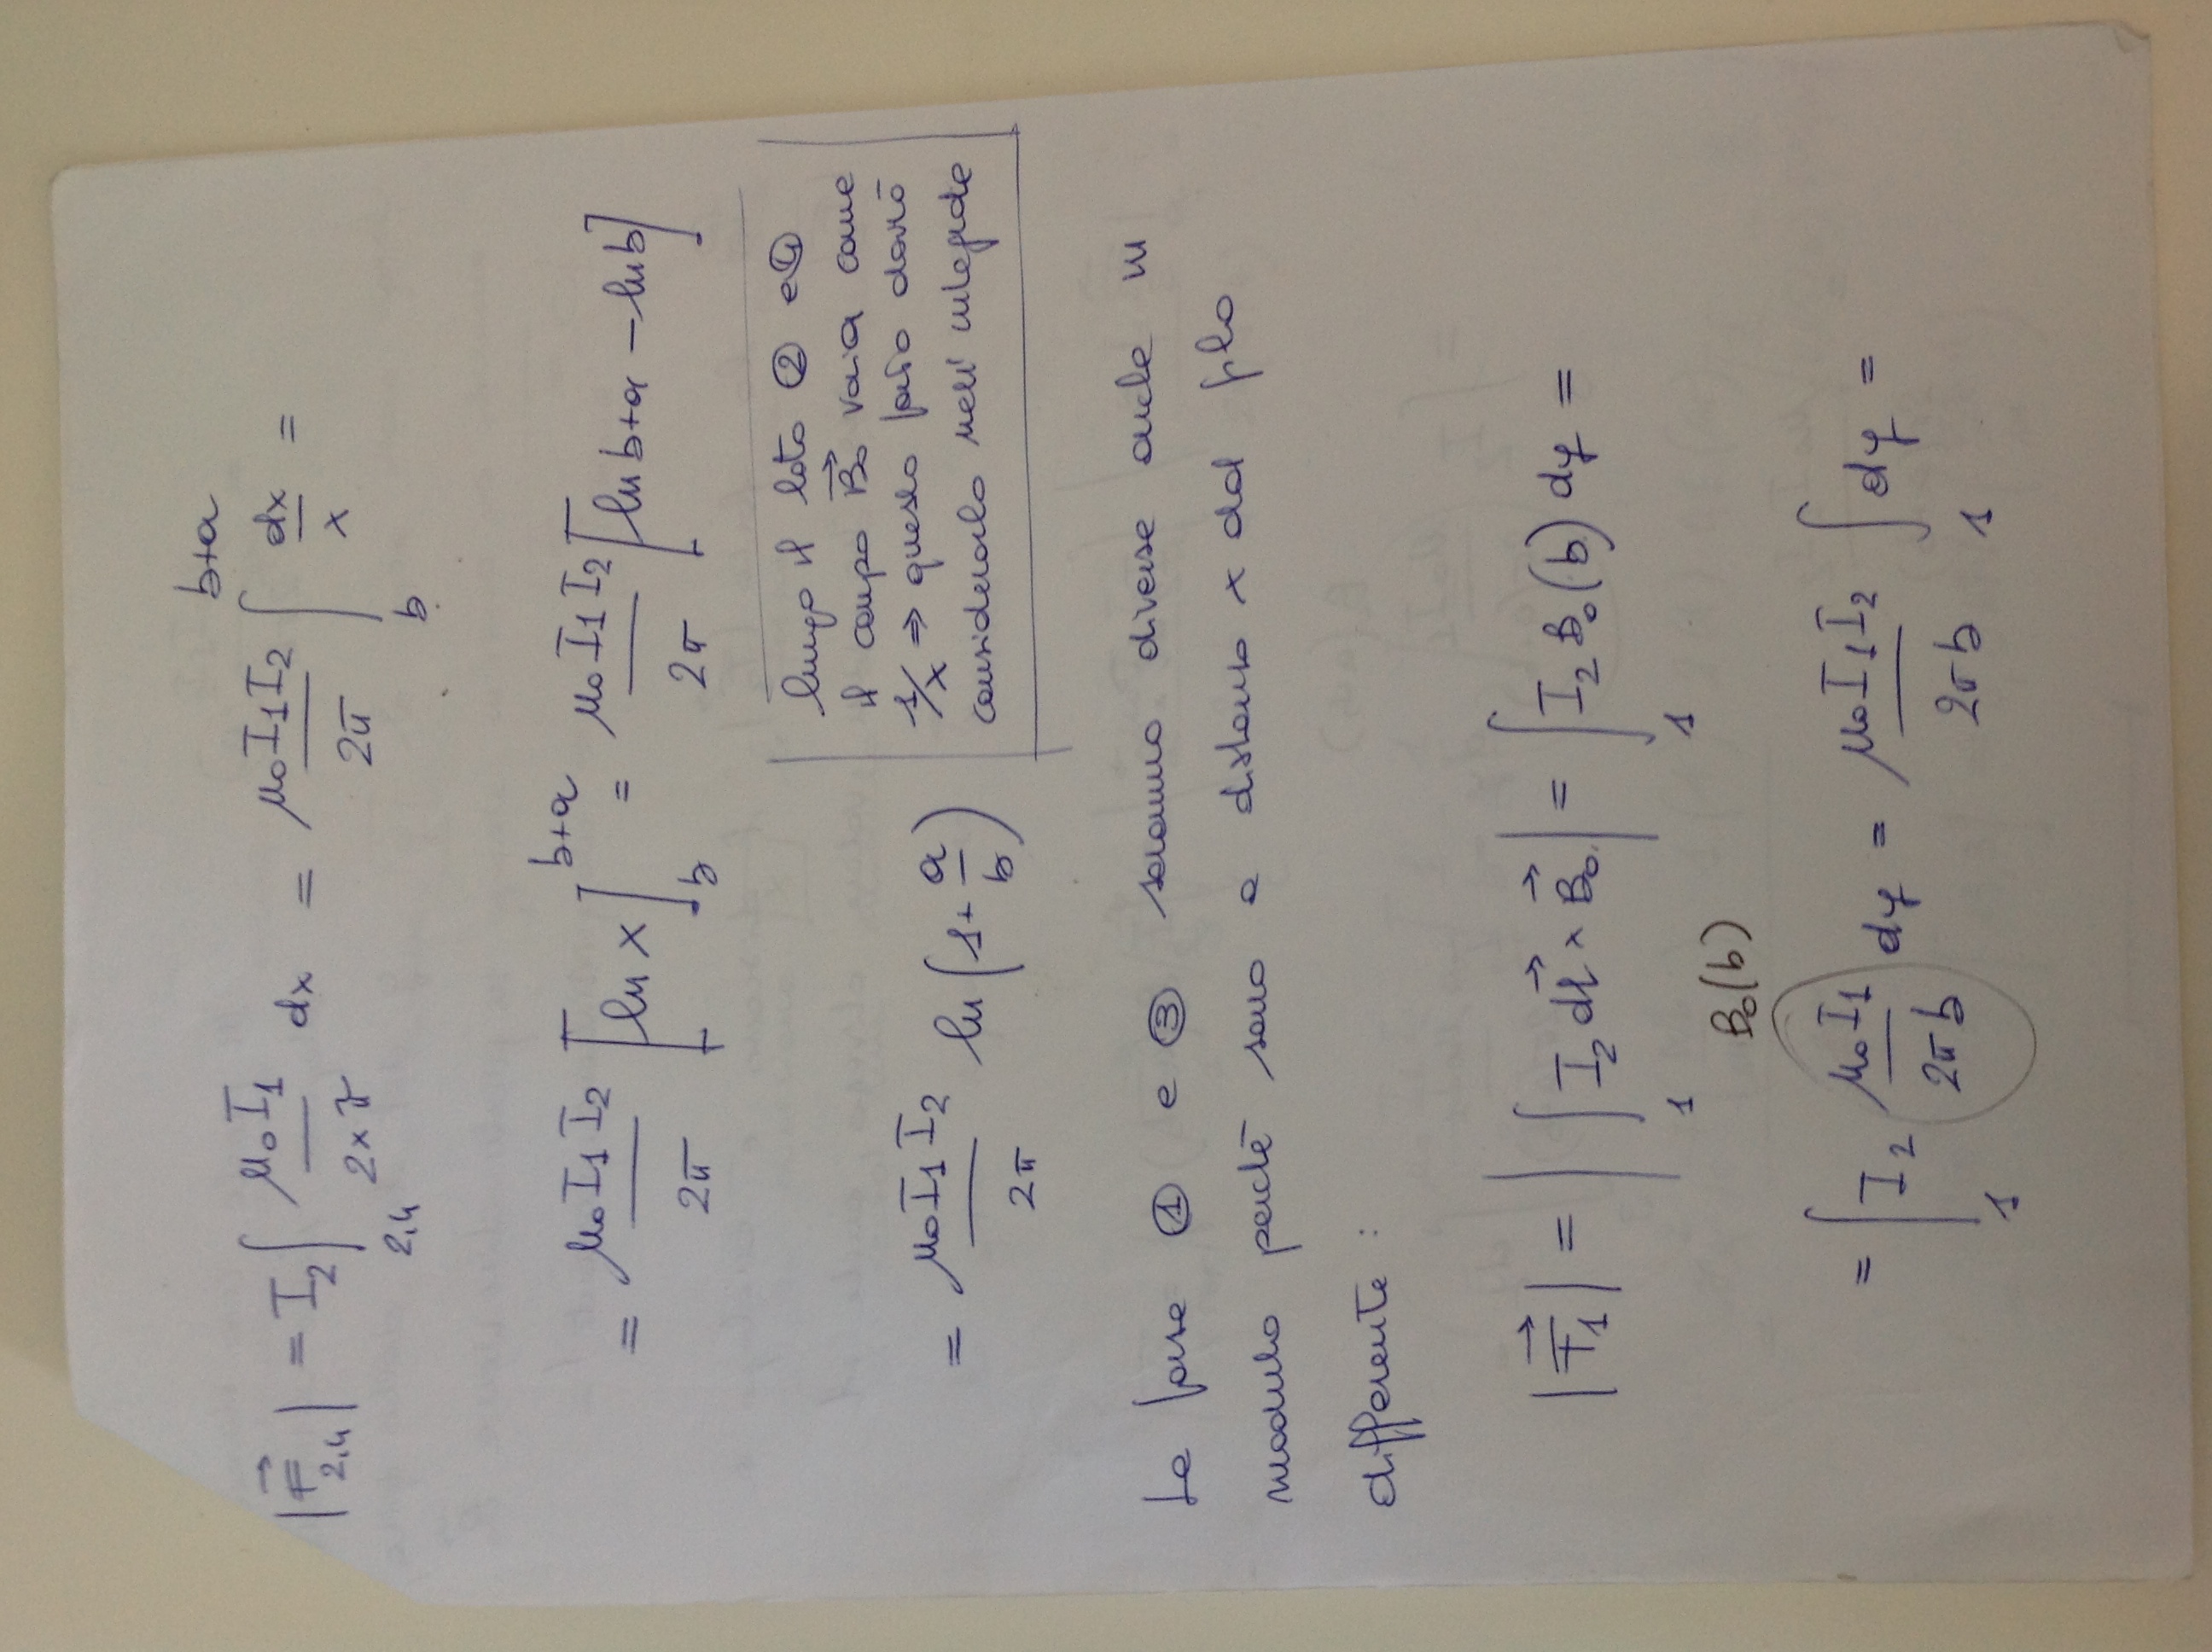 |F⃗2,4| = I2 ∫2,4 μ0 I1 / 2xπ dx = μ0 I1 I2 / 2π ∫b^b+a dx/x =
= μ0 I1 I2 / 2π [ln x]b^b+a = μ0 I1 I2 / 2π [ln b+a − ln b]
lungo il lato ② e ④
il campo B⃗0 varia come
1/x ⇒ questo fatto dovrò
considerarlo nell' integrale
= μ0 I1 I2 / 2π ln(1 + a/b)
Le forze ① e ③ saranno diverse anche in
modulo perchè sono a distanza x dal filo
differente :
|F⃗1| = |∫1 I2 dl⃗ × B⃗0| = ∫1 I2 B0(b) dy =
B0(b)
= ∫1 I2 μ0 I1 / 2πb dy = μ0 I1 I2 / 2πb ∫1 dy =